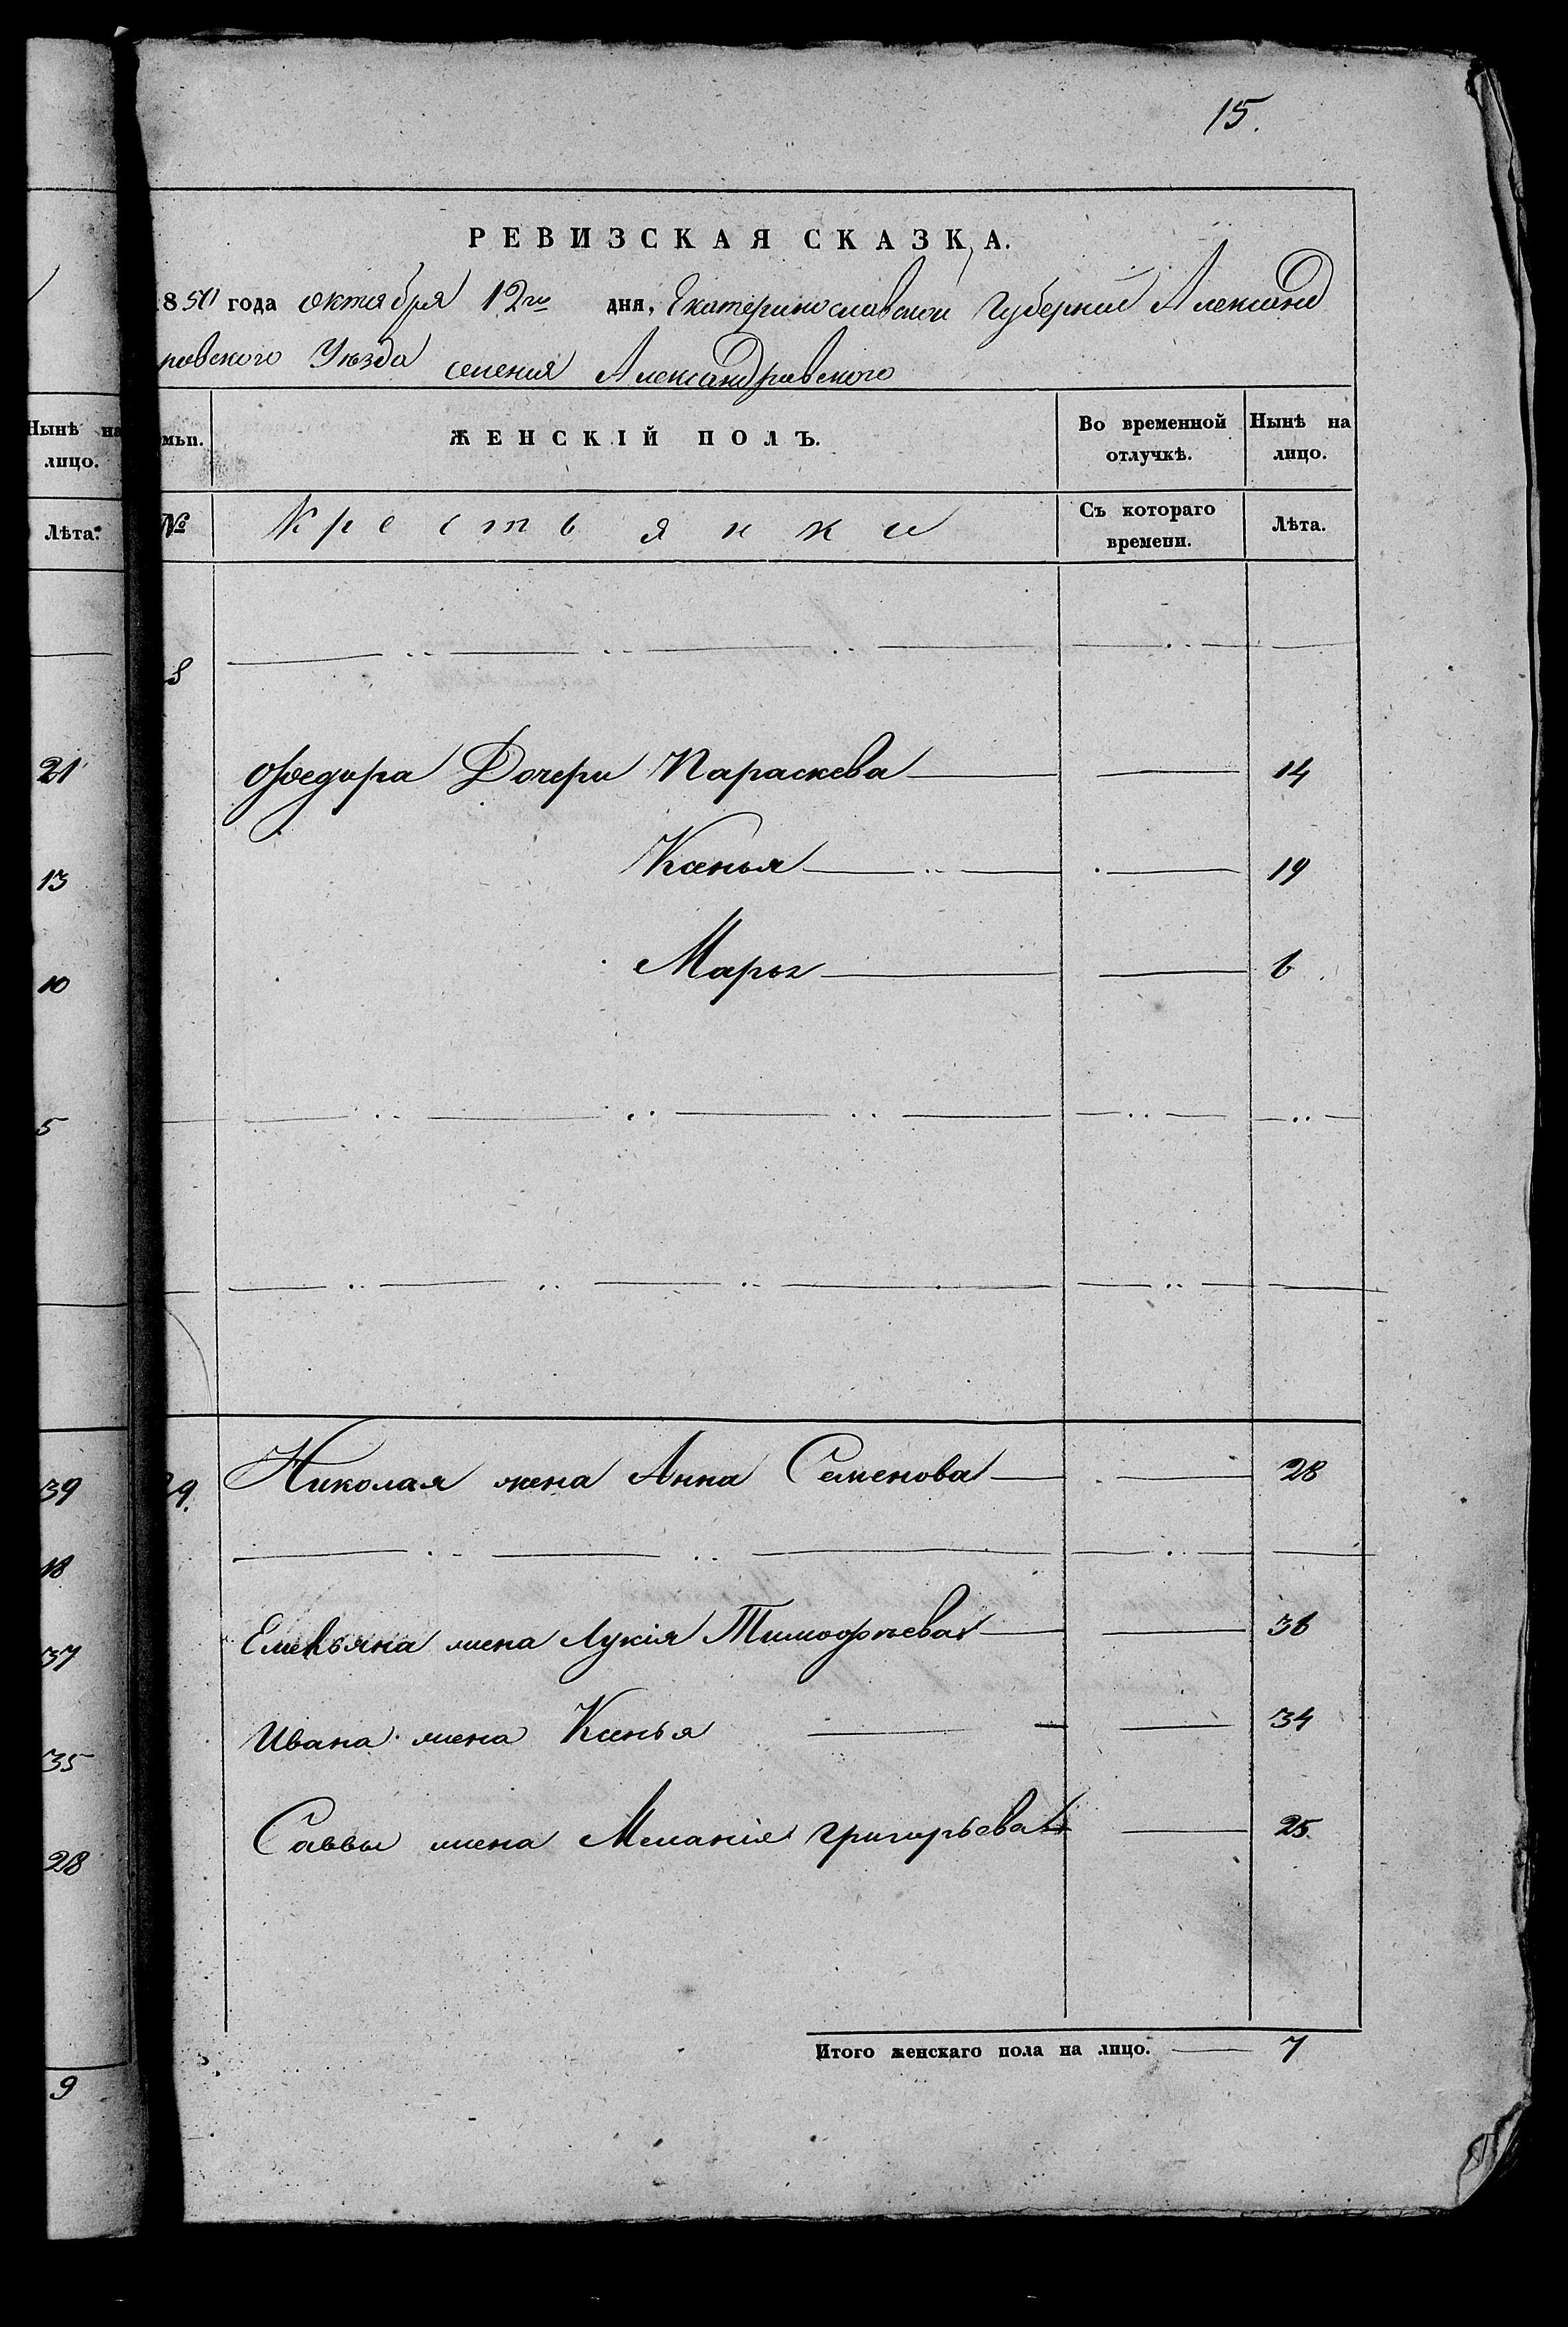 15.
РЕВИЗСКАЯ СКАЗКА.
850 года октября 12го дня, Екатеринославской Губернии Александ
ровского Уѣзда селения Александровского
Нынѣ на лицо.
мьи.
ЖЕНСКІЙ ПОЛЪ.
Во временной отлучкѣ.
Нынѣ на лицо.
Лѣта.
№
Крестьянки
Съ котораго времени.
Лѣта.
8
21
Федора Дочери Параскева 14
13
Ксенья 19
10
Марья 6
5
39
9.
Николая жена Анна Семенова 28
18
37
Емельяна жена Лукія Тимофѣева 36
35
Ивана жена Ксенья 34
28
Саввы жена Меланія Григорьева 25
Итого женскаго пола на лицо. 7
9